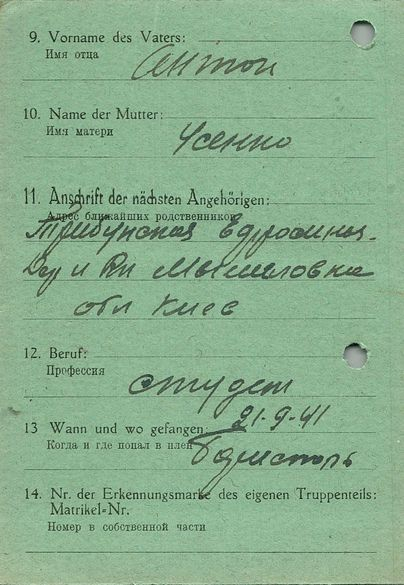 9. Vorname des Vaters:
Имя отца
Антон
10. Name der Mutter:
Имя матери
Усенко
11. Anschrift der nächsten Angehörigen:
Адрес ближайших родственников
Трибунская
и
обл Киев
12. Beruf:
Профессия
студет
13 Wann und wo gefangen:
21-9-41
Когда и где попал в плен
14. Nr. der Erkennungsmarke des eigenen Truppenteils:
Matrikel-Nr.
Номер в собственной части